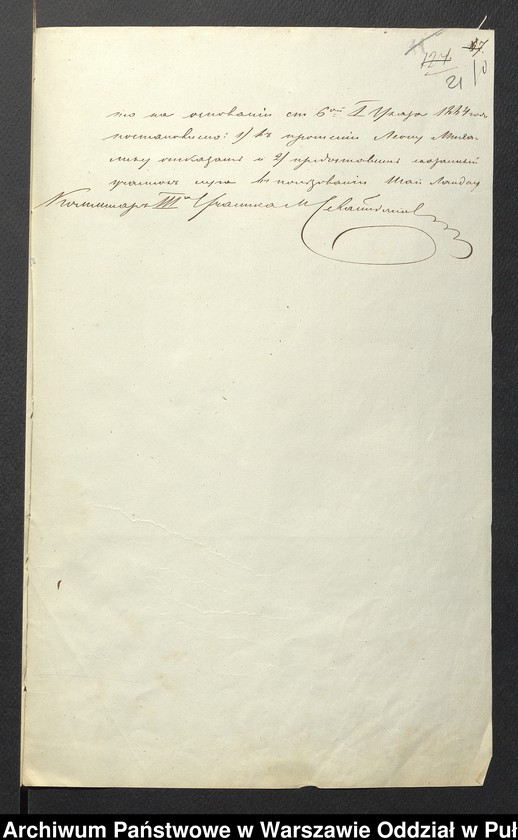 47.
124
21 10
то на основании ст 6ой I Указа 1864 года
постановилъ: 1/ въ прошении Леону Миха-
льку отказать и 2/ предоставить сказанный
участокъ въ пользование
Коммисаръ III Участка
Archiwum Państwowe w Warszawie Oddział w Puł